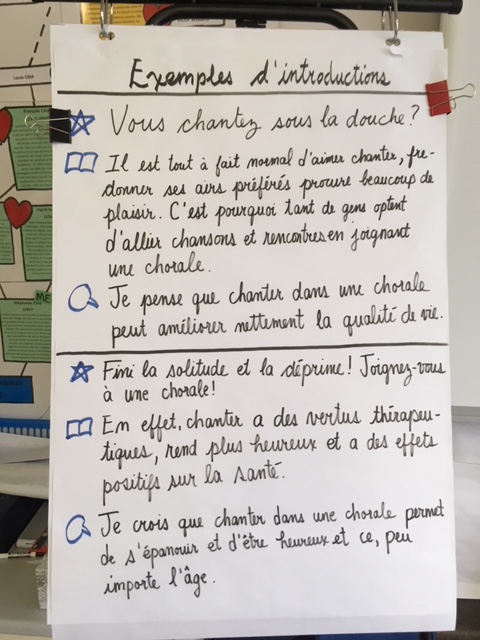 Exemples d'introductions
Vous chantez sous la douche?
Il est tout à fait normal d'aimer chanter, fre-
donner ses airs préférés procure beaucoup de
plaisir. C'est pourquoi tant de gens optent
d'allier chansons et rencontres en joignant
une chorale.
Je pense que chanter dans une chorale
peut améliorer nettement la qualité de vie.
Fini la solitude et la déprime! Joignez-vous
à une chorale!
En effet, chanter a des vertus thérapeu-
tiques, rend plus heureux et a des effets
positifs sur la santé.
Je crois que chanter dans une chorale permet
de s'épanouir et d'être heureux et ce, peu
importe l'âge.